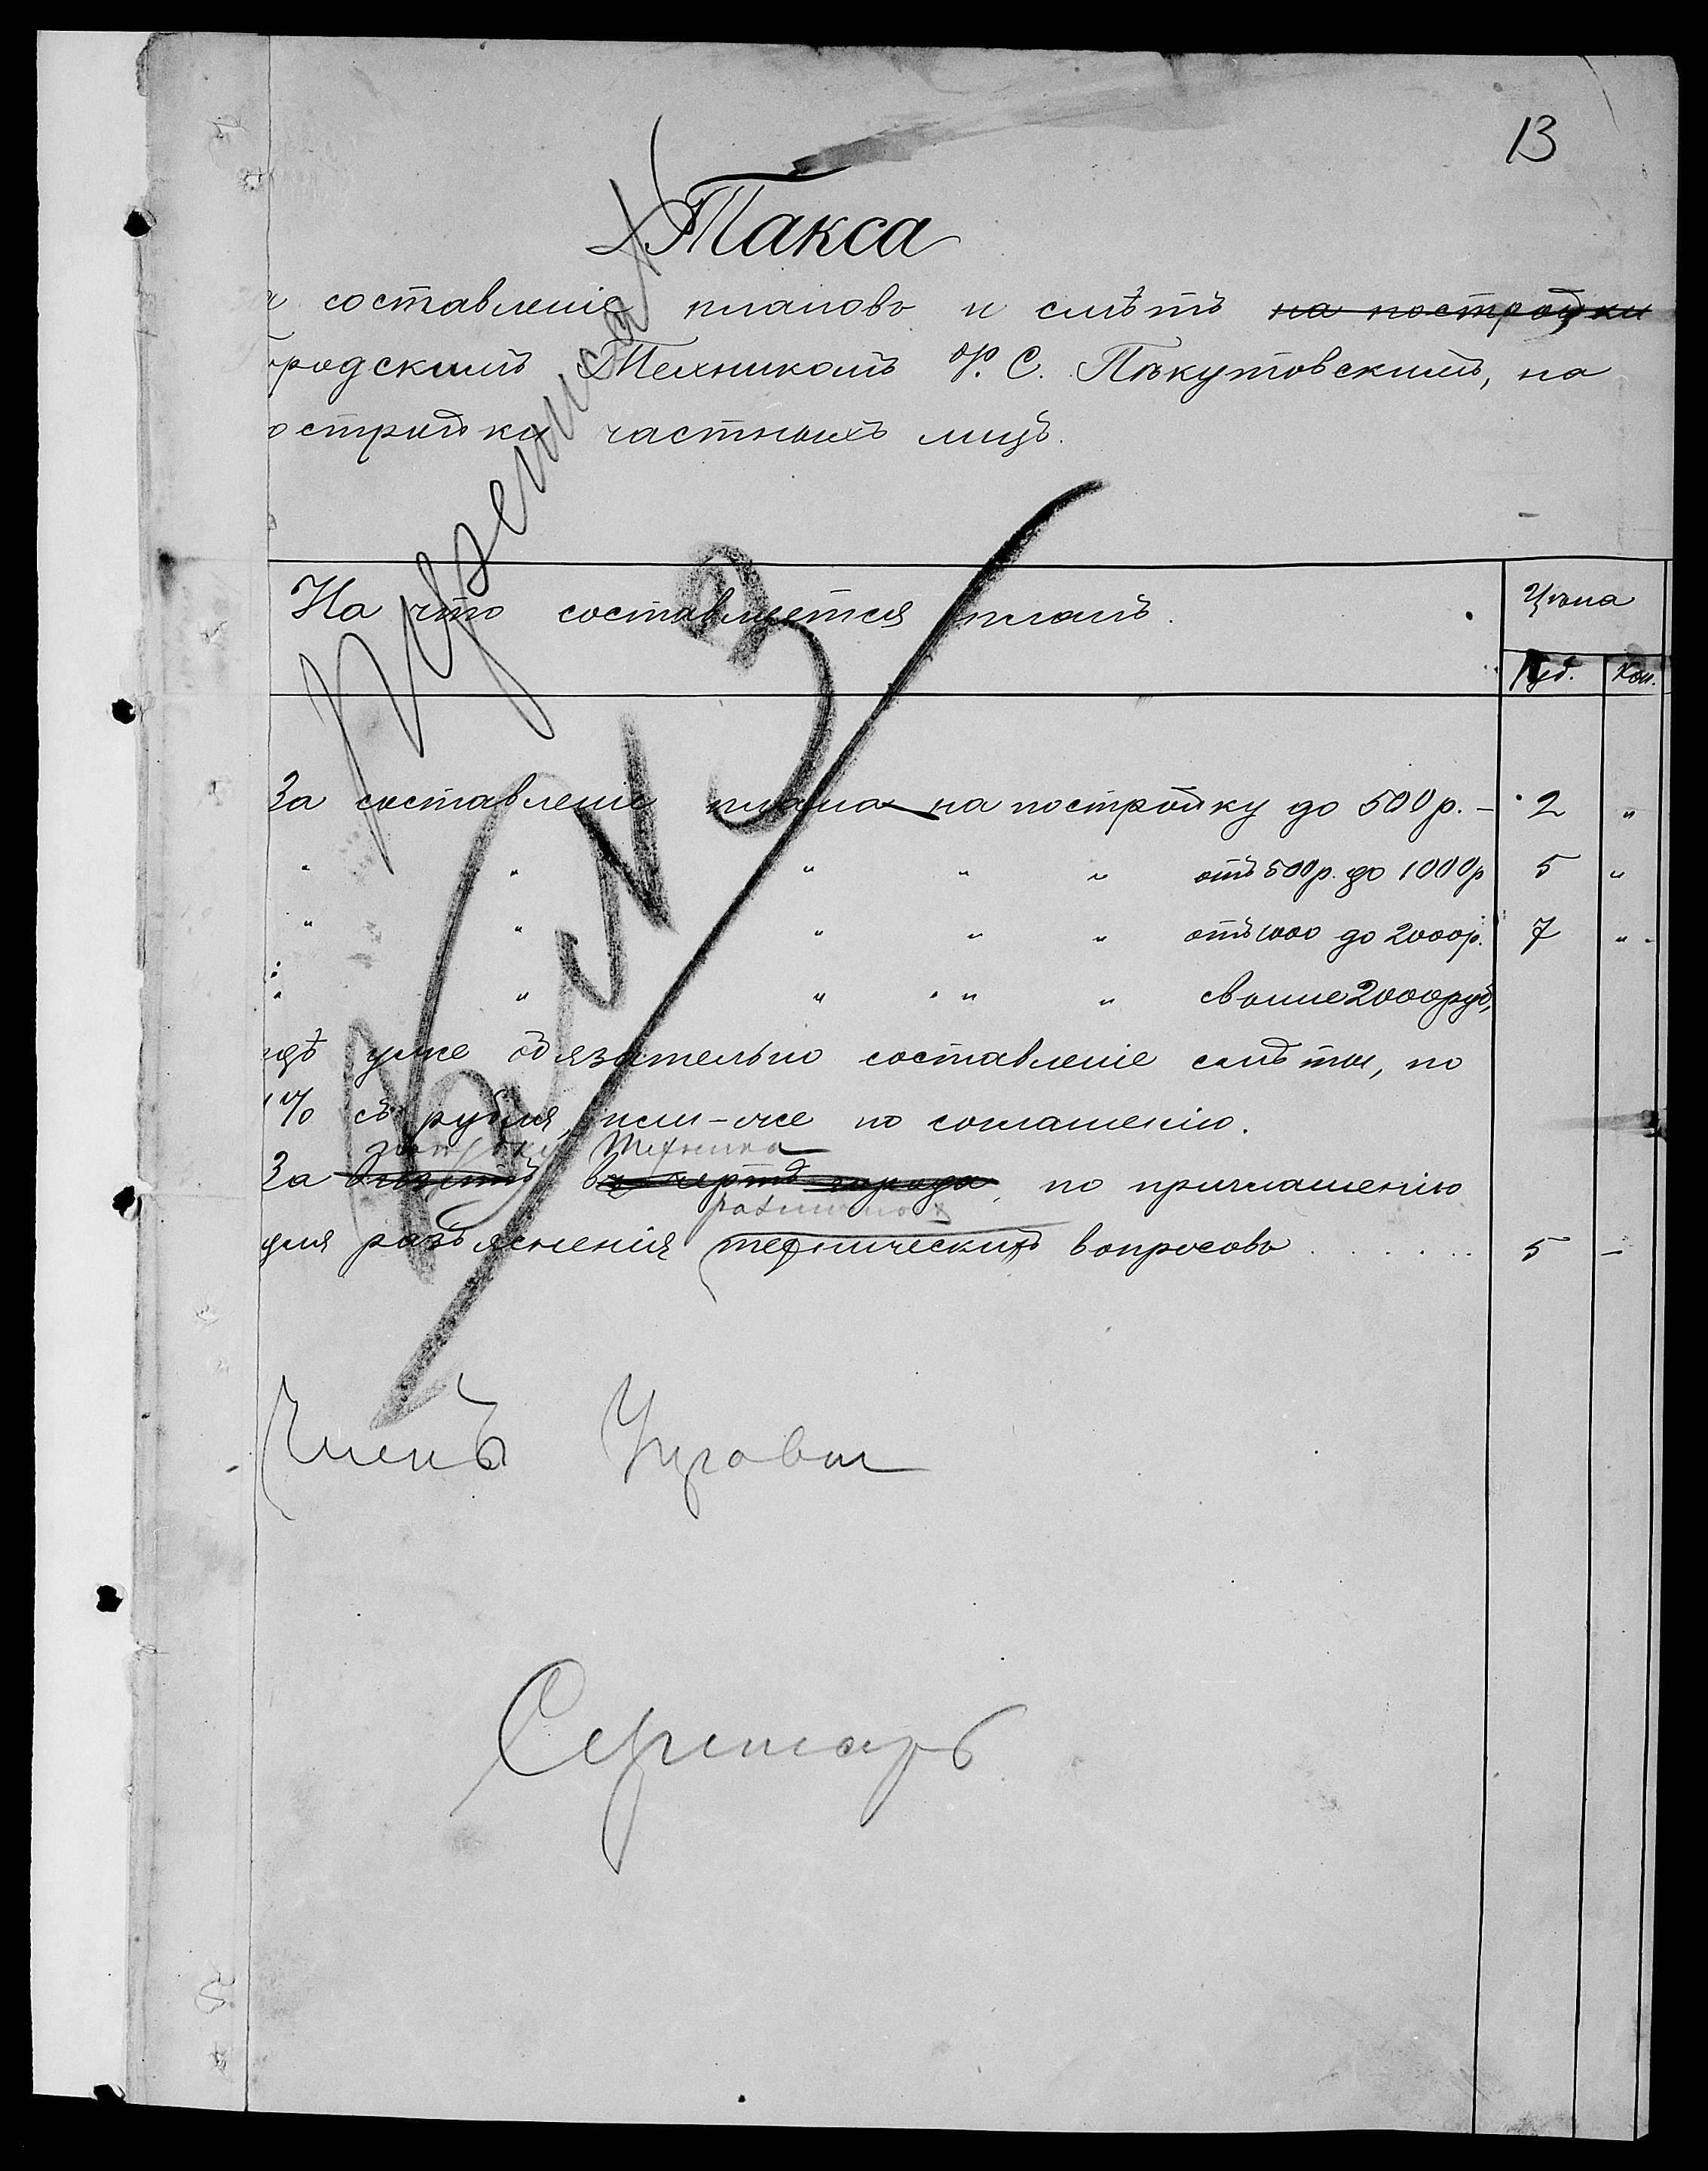 13
Такса
а составленіе плановъ и смѣтъ на постройки
ородскимъ Техникомъ Ф. С. Пѣкутовскимъ, на
остройки частныхъ лицъ.
На что составляется планъ. Цѣна
Руб. Коп.
За составленіе плана на постройку до 500 р. – 2 "
" " " " " отъ 500 р. до 1000 р 5 "
" " " " " отъ 1000 до 2000 р. 7 "
" " " " " свыше 2000 руб,
гдѣ уже обязательно составленіе смѣты, по
1% съ рубля, или-же по соглашенію.
Техника
За въ чертѣ города, по приглашенію
различных
для разъясненія техническихъ вопросовъ . . . . . . 5 –
Членъ Управы
Секретарь